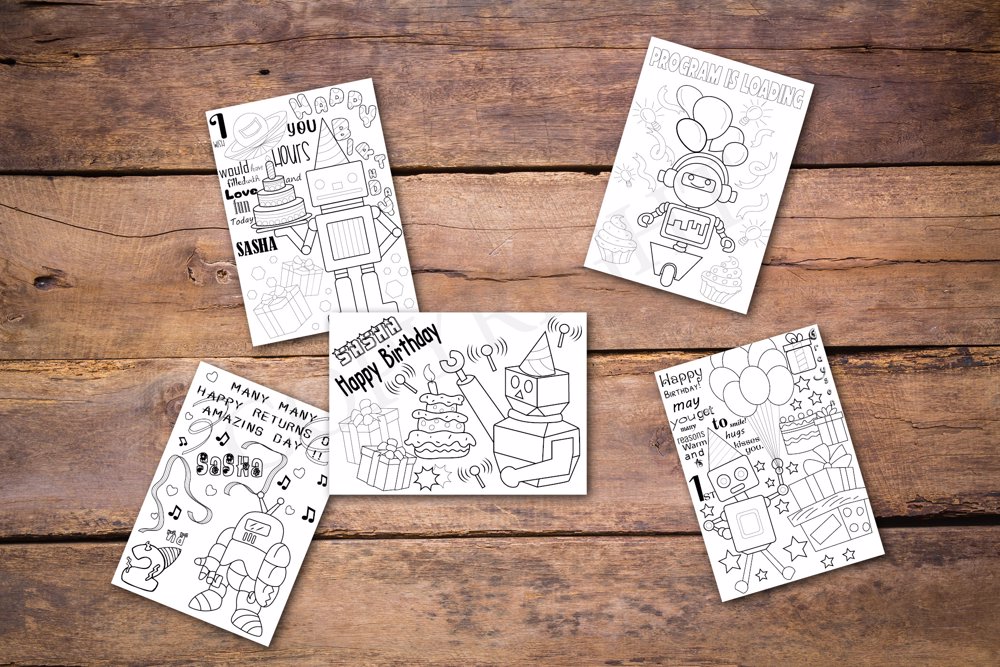 1
WISH
YOU
HAPPY
BIRTHDAY
HOURS
would
filled with
and
Love
fun
Today
SASHA
PROGRAM IS LOADING
SASHA
Happy Birthday
MANY MANY
HAPPY RETURNS O
AMAZING DAY
!!
SASHA
2
nd
Happy
BIRTHDAY!
may
You get
many
reasons
Warm
and
to smile!
hugs
kisses
you.
1ST